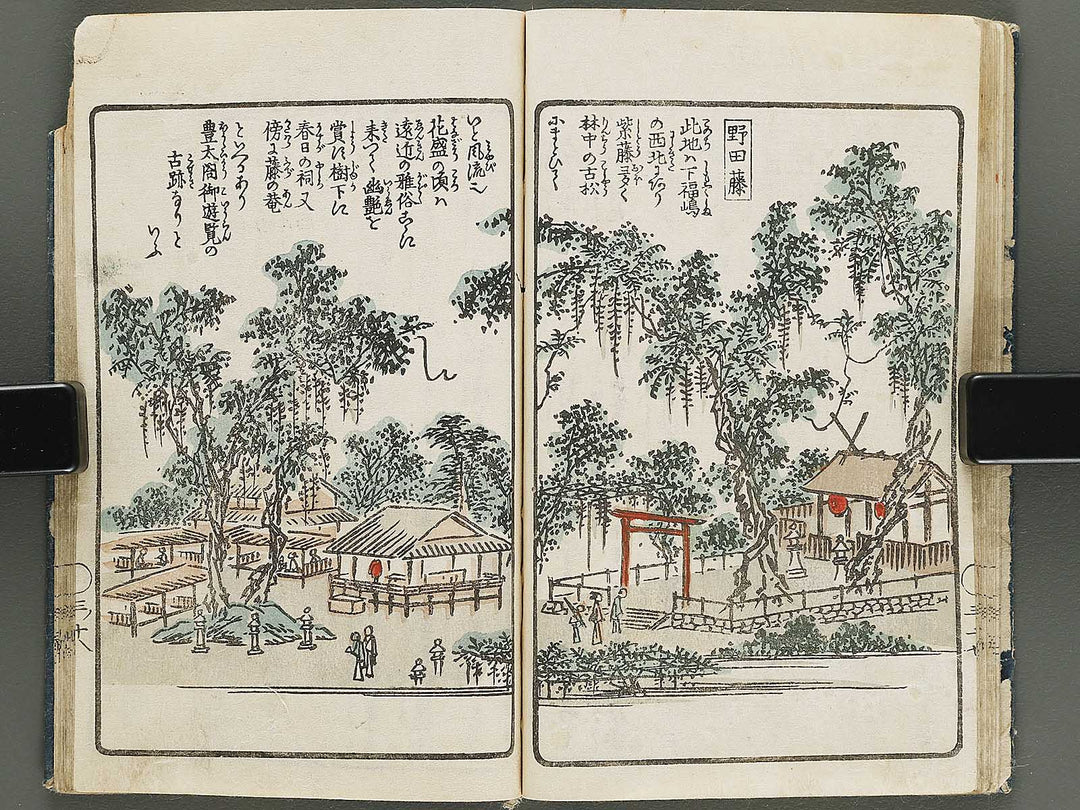 野田藤
此地ハ下福嶋
の西北にあり
紫藤多く
林中の古松
にまとひて
いと風流也
花盛の頃ハ
遠近の雅俗こゝに
来つて幽艶を
賞す樹下に
春日の祠又
傍に藤の菴
といへるあり
豊太閤御遊覧の
古跡なりと
いふ